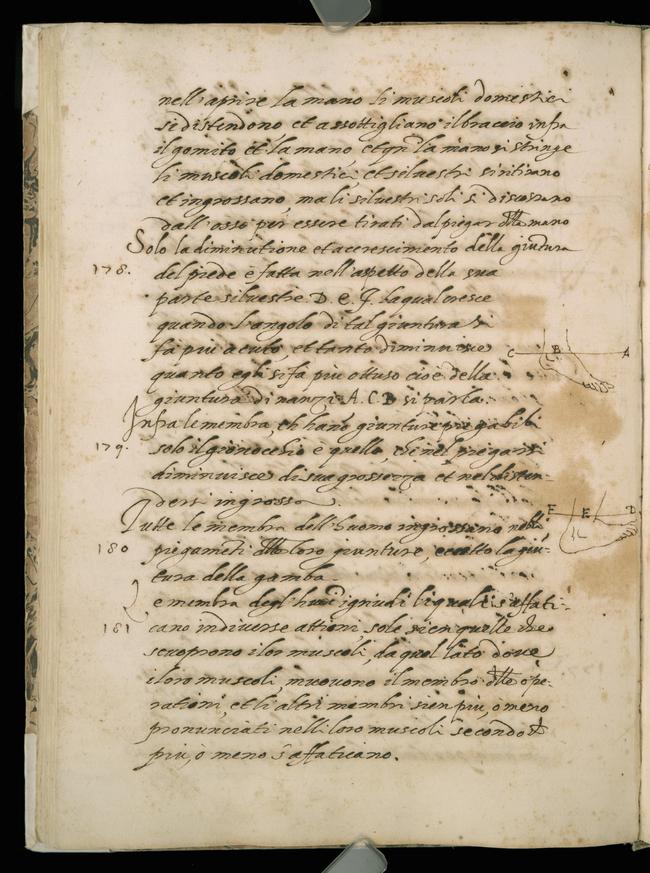 nell'aprire la mano li muscoli domestici
si distendono et assottigliano il braccio infra
il gomito et la mano et qn la mano si stringe
li muscoli domestici et silvestri si ritirano
et ingrossano, ma li silvestri soli si discostano
dall'osso per essere tirati dal piegar dlla mano
Solo la diminutione et accrescimento della giuntura
178. del piede è fatta nell'aspetto della sua
parte silvestre D. e. f. la qual cresce
quando l'angolo di tal giuntura si
C B A
fa piu acuto, et tanto diminuisce
quanto egli si fa piu ottuso cioè della
giuntura dinanzi A. C. B si parla.
Infra le membra, ch hano giunture piegabili
179. solo il ginocchio è quello, chi nel piegarsi
diminuisce di sua grossezza et nel disten-
dersi ingrossa.
F E D
Tutte le membra dell'huomo ingrossano nelli
180 piegameti dlle loro giunture, eccetto la giu-
tura della gamba.
Le membra degl'huoi ignudi li quali s'affati-
181 cano in diverse attioni, sole sien quelle che
scuoprono i lor muscoli, da quel lato dove
i loro muscoli, muovono il membro dlle ope-
rationi, et li altri membri sien piu, o meno
pronunciati nelli loro muscoli secondo ch
piu, o meno s'affaticano.